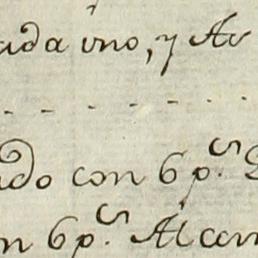 ada vno, y Av
do con 6 p.s
n 6 p.s Alcan